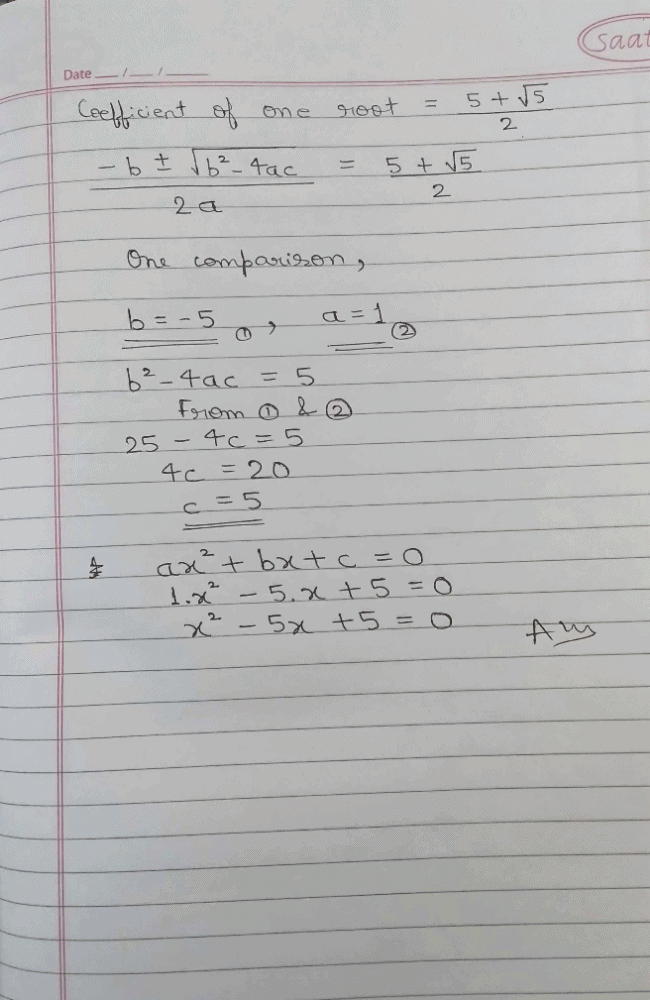 saat
Date __/__/__
Coefficient of one root = (5 + √5)/2
(-b ± √(b² - 4ac))/2a = (5 + √5)/2
One comparison,
b = -5 ①, a = 1 ②
b² - 4ac = 5
From ① & ②
25 - 4c = 5
4c = 20
c = 5
ax² + bx + c = 0
1.x² - 5.x + 5 = 0
x² - 5x + 5 = 0 Ans